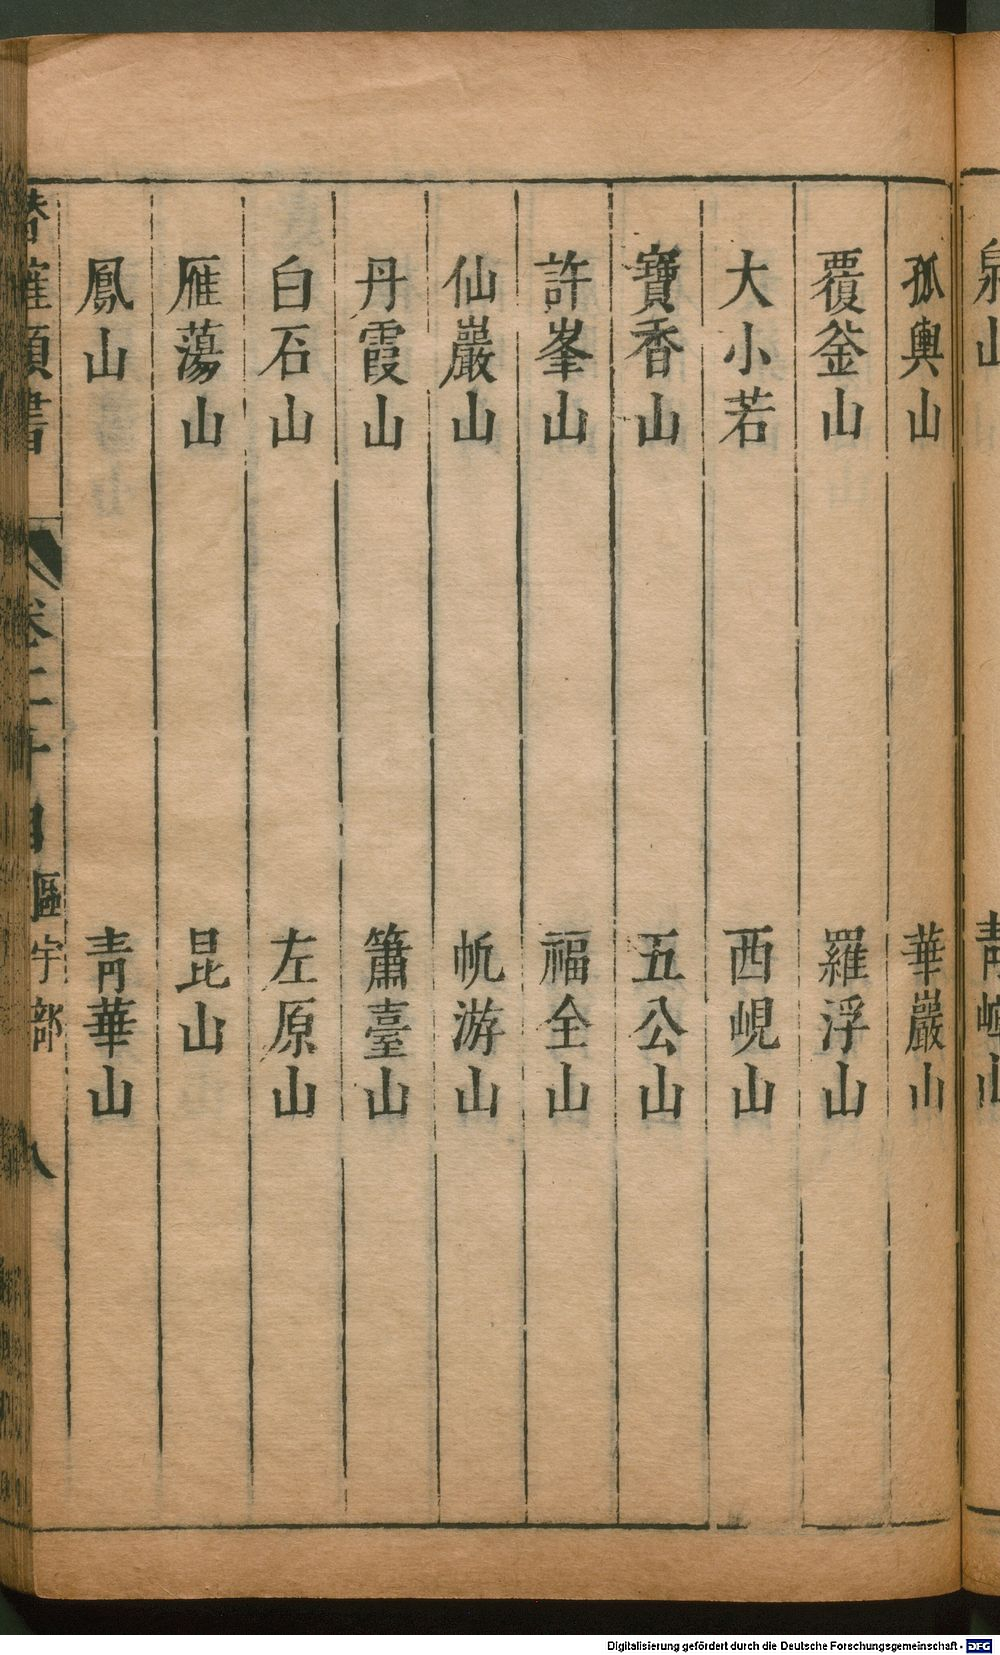 孤輿山 華巖山
覆釜山 羅浮山
大小若 西峴山
寶香山 五公山
許峯山 福全山
仙巖山 帆游山
丹霞山 簫臺山
白石山 左原山
雁蕩山 昆山
鳳山 青華山
類書 卷二十目 區宇部 八
Digitalisierung gefördert durch die Deutsche Forschungsgemeinschaft - DFG